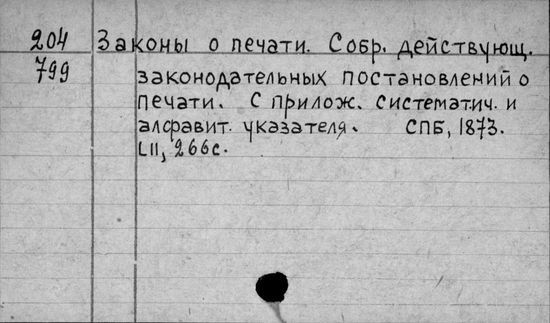 204 Законы о печати. Собр. действующ.
799 законодательных постановлений о
печати. С прилож. систематич. и
алфавит. указателя. СПБ, 1873.
LII, 266с.